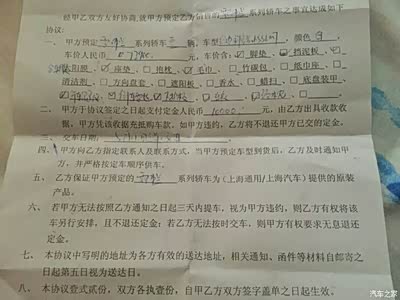 经甲乙双方友好协商,就甲方预定乙方销售的 系列轿车之事宜达成如下
协议:
一、甲方预定 系列轿车 辆,车型 ,颜色
车价人民币 元,车价含:☑脚垫、☑挡泥板、
☑座垫、□抱枕、☑毛巾、□竹碳包、□纸巾座、
□方向盘套、□遮阳板、□香水、□蜡扫、□底盘装甲、
二、甲方于协议签定之日起支付定金人民币 10000 元,由乙方出具收款收
据,甲方凭该收据充抵购车款,如甲方违约,乙方将不退还甲方已交的定金。
三、交车日期:
四、甲方向乙方指定联系人及联系方式,当甲方预定车型到货后,乙方及时通知甲
方,并严格按定车顺序供车。
五、乙方保证甲方预定的 系列轿车为(上海通用/上海汽车)提供的原装
产品。
六、若甲方无法按照乙方通知之日起三天内提车,视为甲方违约,则乙方有权将该
车另行安排,且不退还定金;若乙方无法按时交车,则甲方有权要求无息退还
定金。
七、本协议中写明的地址为各方有效的送达地址,相关通知、函件等材料自邮寄之
日起第五日视为送达日。
八、本协议壹式贰份,双方各执壹份,自甲乙方双方签字盖单之日起生效。
汽车之家